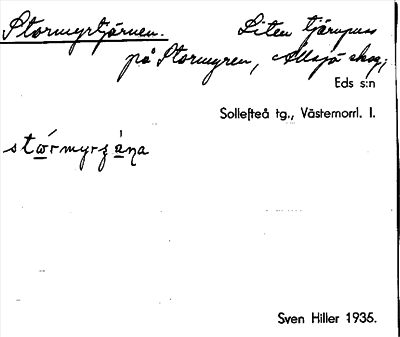 Stormyrtjärnen. Liten tjärnpuss
på Stormyren, Allsjö skog,
Eds s:n
Sollefteå tg., Västernorrl. l.
Sven Hiller 1935.